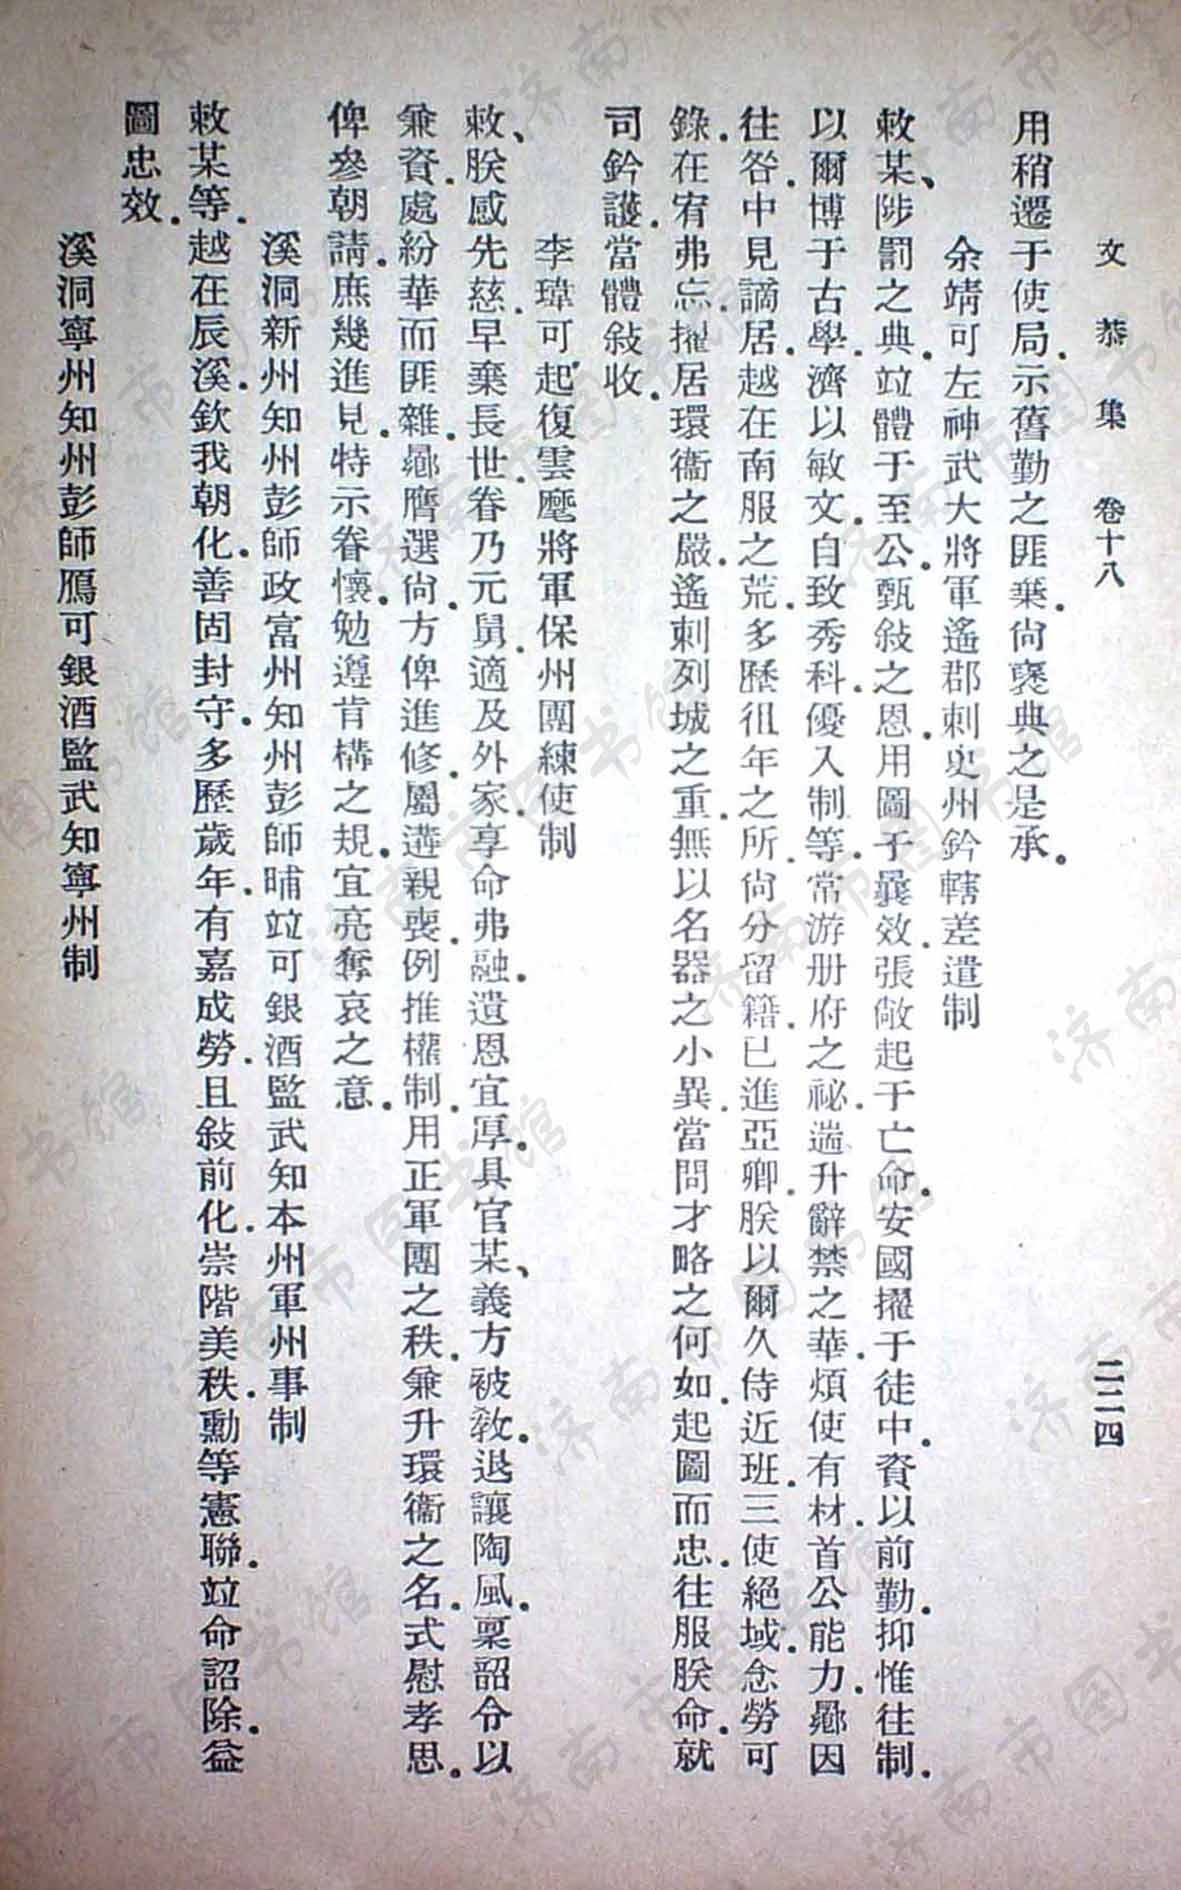 文恭集　卷十八　二二四
用稍遷于使局.示舊勤之匪棄.尙褒典之是承.
余靖可左神武大將軍遙郡刺史州鈐轄差遣制
敕某、陟罰之典.竝體于至公.甄敍之恩.用圖于曩效.張敞起于亡命.安國擢于徒中.資以前勤.抑惟往制.
以爾博于古學.濟以敏文.自致秀科.優入制等.常游册府之祕.遄升辭禁之華.煩使有材.首公能力.曏因
往咎.中見謫居.越在南服之荒.多歷徂年之所.尙分留籍.已進亞卿.朕以爾久侍近班.三使絕域.念勞可
錄.在宥弗忘.擢居環衞之嚴.遙刺列城之重.無以名器之小異.當問才略之何如.起圖而忠.往服朕命.就
司鈐護.當體敍收.
李瑋可起復雲麾將軍保州團練使制
敕、朕感先慈.早棄長世.眷乃元舅.適及外家.享命弗融.遺恩宜厚.具官某、義方被敎.退讓陶風.稟詔令以
兼資.處紛華而匪雜.曏膺選尙.方俾進修.屬遘親喪.例推權制.用正軍團之秩.兼升環衞之名.式慰孝思.
俾參朝請.庶幾進見.特示眷懷.勉遵肯構之規.宜亮奪哀之意.
溪洞新州知州彭師政富州知州彭師晡竝可銀酒監武知本州軍州事制
敕某等.越在辰溪.欽我朝化.善固封守.多歷歲年.有嘉成勞.且敍前化.崇階美秩.勳等憲聯.竝命詔除.益
圖忠效.
溪洞寧州知州彭師鴈可銀酒監武知寧州制